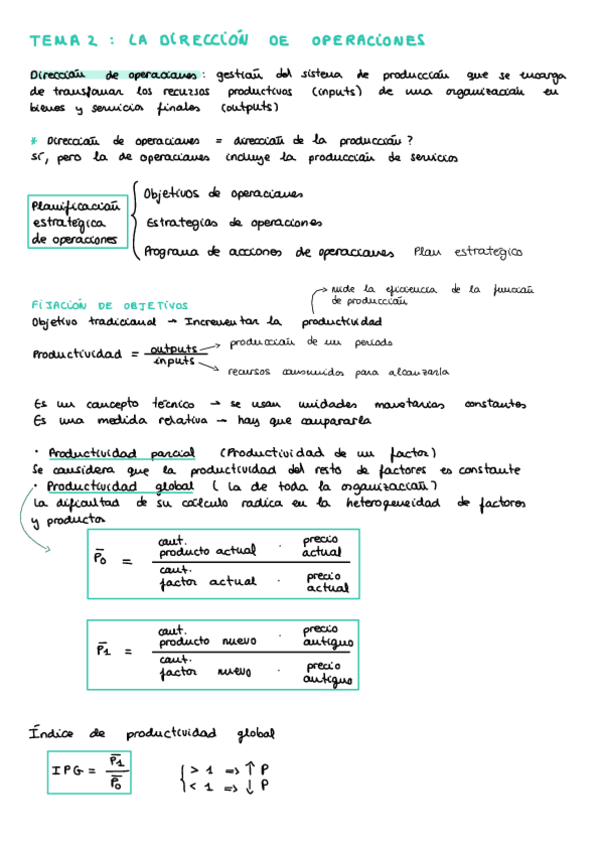 TEMA 2 : LA DIRECCIÓN DE OPERACIONES
Dirección de operaciones: gestión del sistema de producción que se encarga
de transformar los recursos productivos (inputs) de una organización en
bienes y servicios finales (outputs)
* Dirección de operaciones = dirección de la producción?
sí, pero la de operaciones incluye la producción de servicios
Planificación
estratégica
de operaciones
Objetivos de operaciones
Estrategias de operaciones
Programa de acciones de operaciones Plan estratégico
FIJACIÓN DE OBJETIVOS
mide la eficiencia de la función
de producción
Objetivo tradicional → Incrementar la productividad
Productividad = outputs / inputs
→ producción de un periodo
→ recursos consumidos para alcanzarla
Es un concepto técnico → se usan unidades monetarias constantes
Es una medida relativa → hay que compararla
· Productividad parcial (Productividad de un factor)
Se considera que la productividad del resto de factores es constante
· Productividad global (la de toda la organización)
La dificultad de su cálculo radica en la heterogeneidad de factores
y productos
P̄0 = cant. producto actual · precio actual
cant. factor actual · precio actual
P̄1 = cant. producto nuevo · precio antiguo
cant. factor nuevo · precio antiguo
Índice de productividad global
IPG = P̄1 / P̄0
> 1 => ↑ P
< 1 => ↓ P